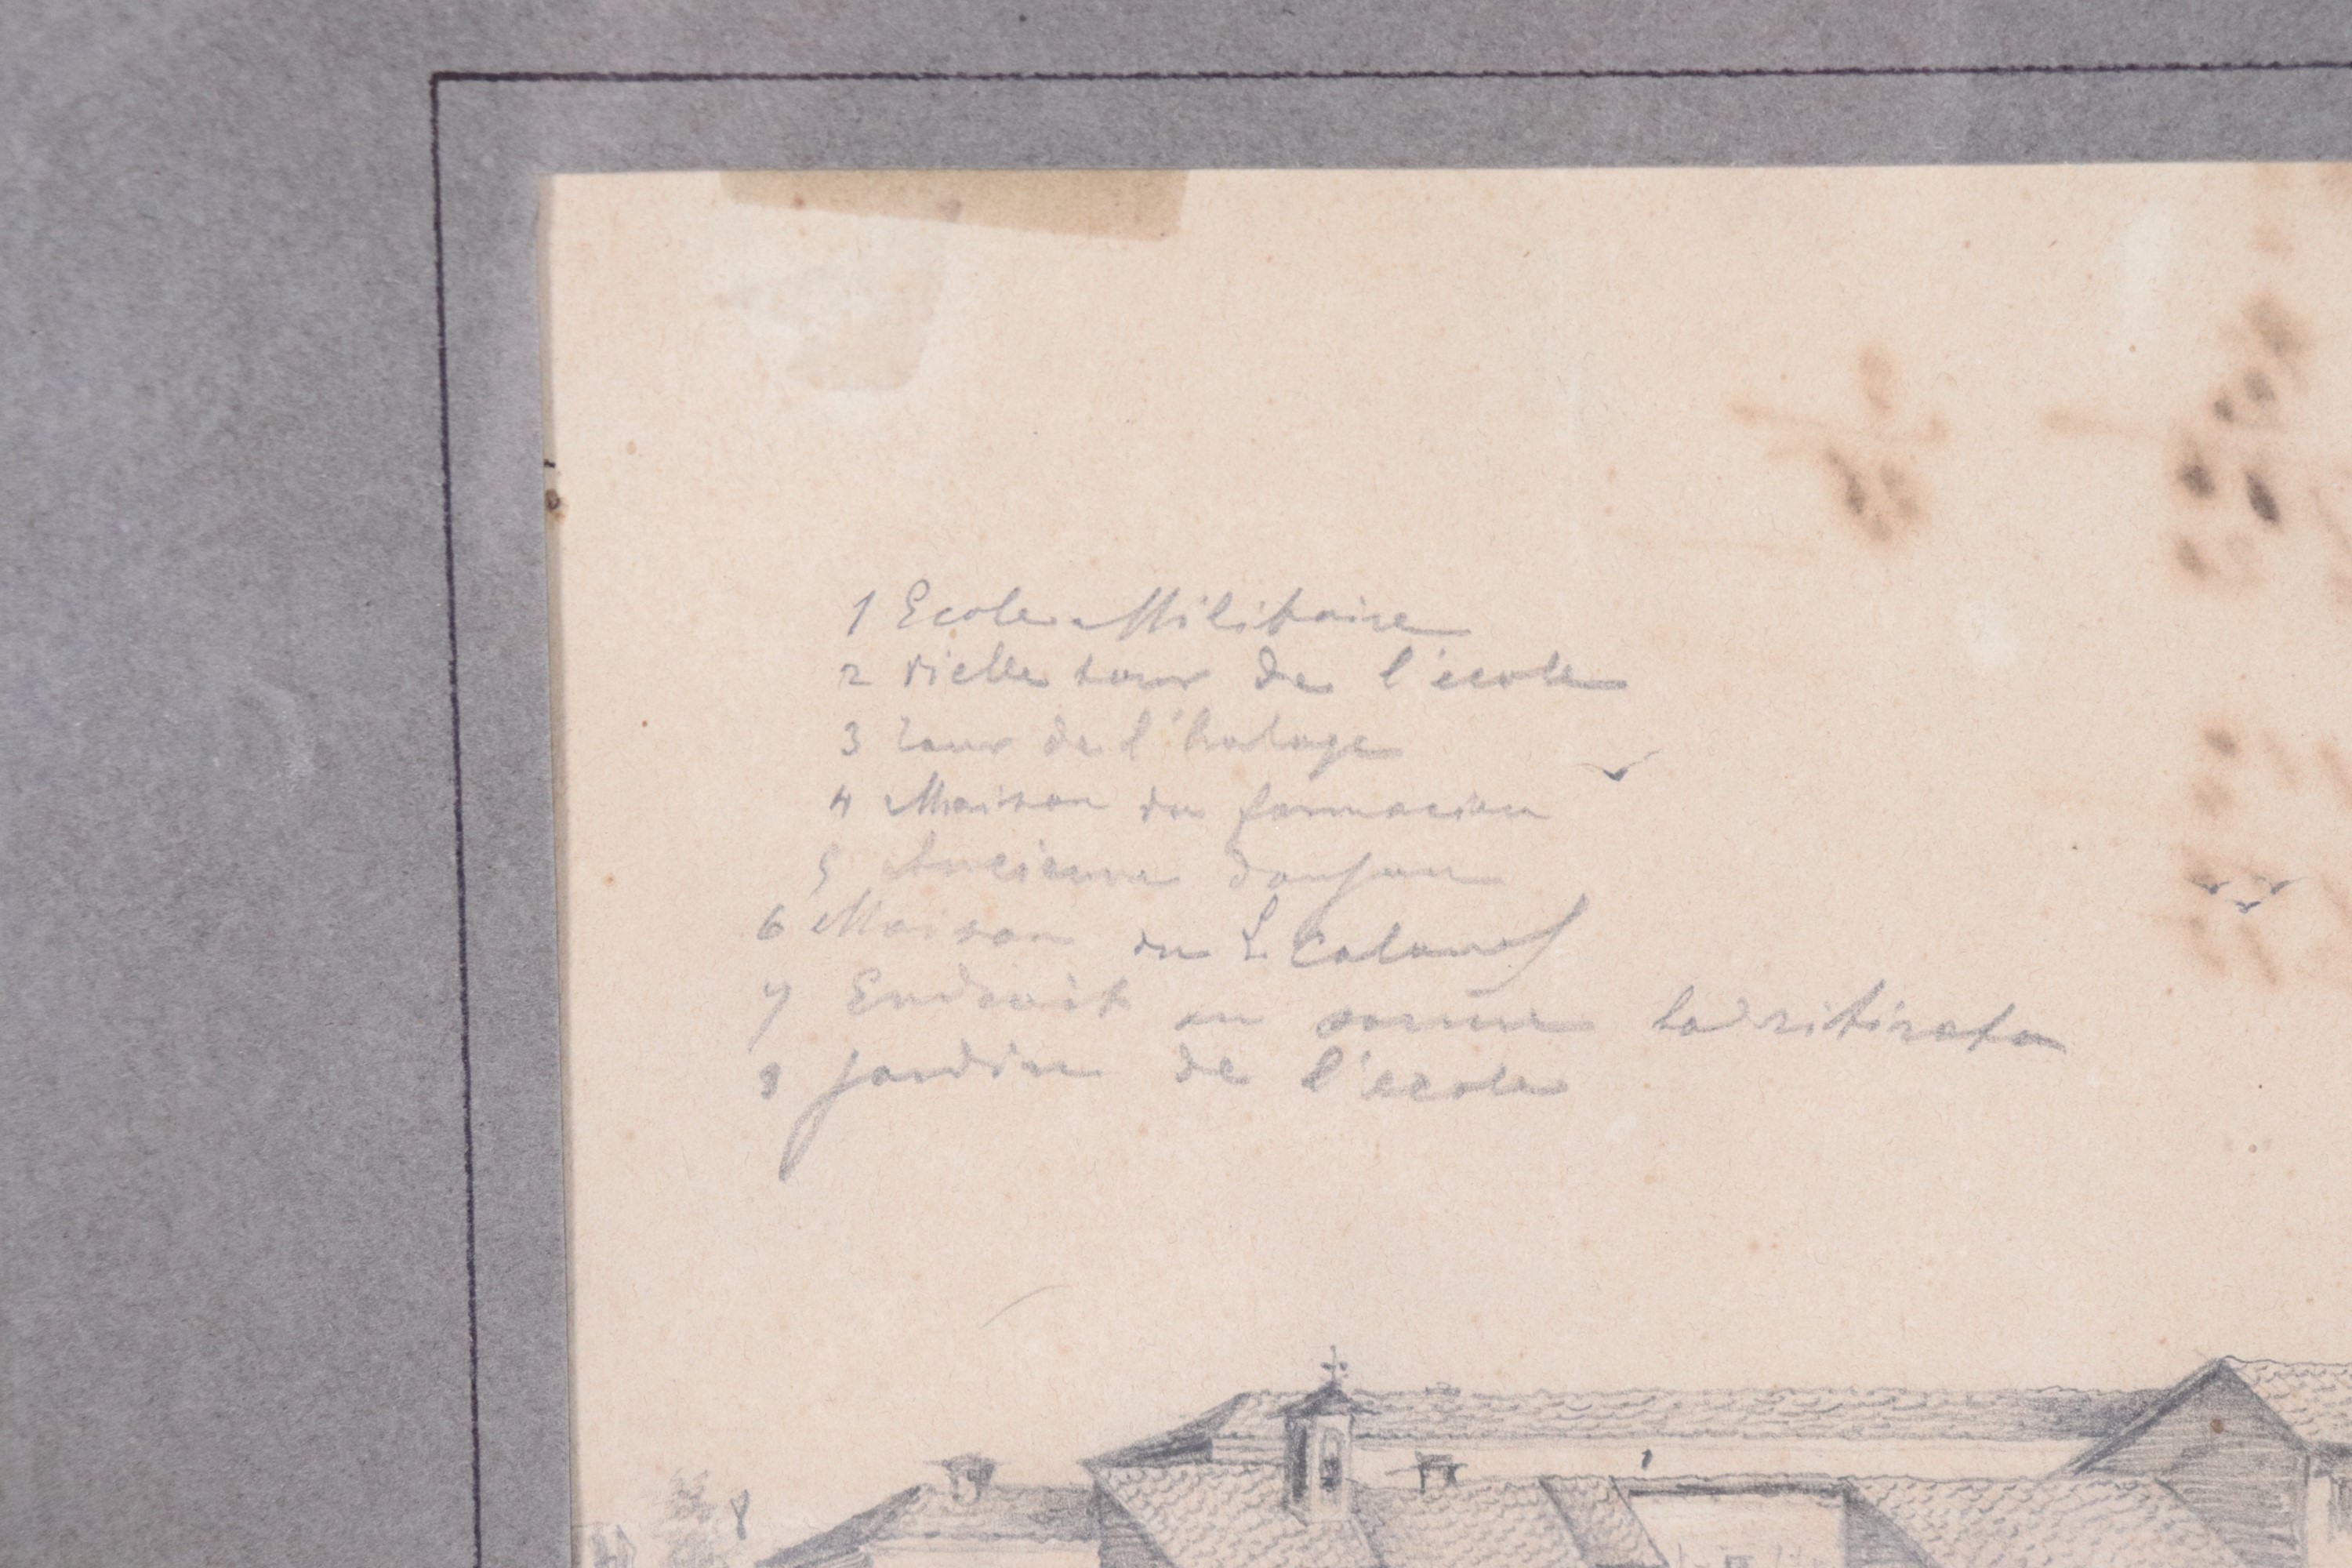 1 Ecole Militaire
2 vielle tour de l'école
3 Tour de l'horloge
4 Maison du
5 Ancienne donjon
6 Maison du L. Colonel
7 Endroit ou sonne la ritirata
8 jardin de l'ecole
8
1